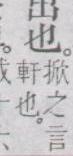 出也。
掀之言
軒也。